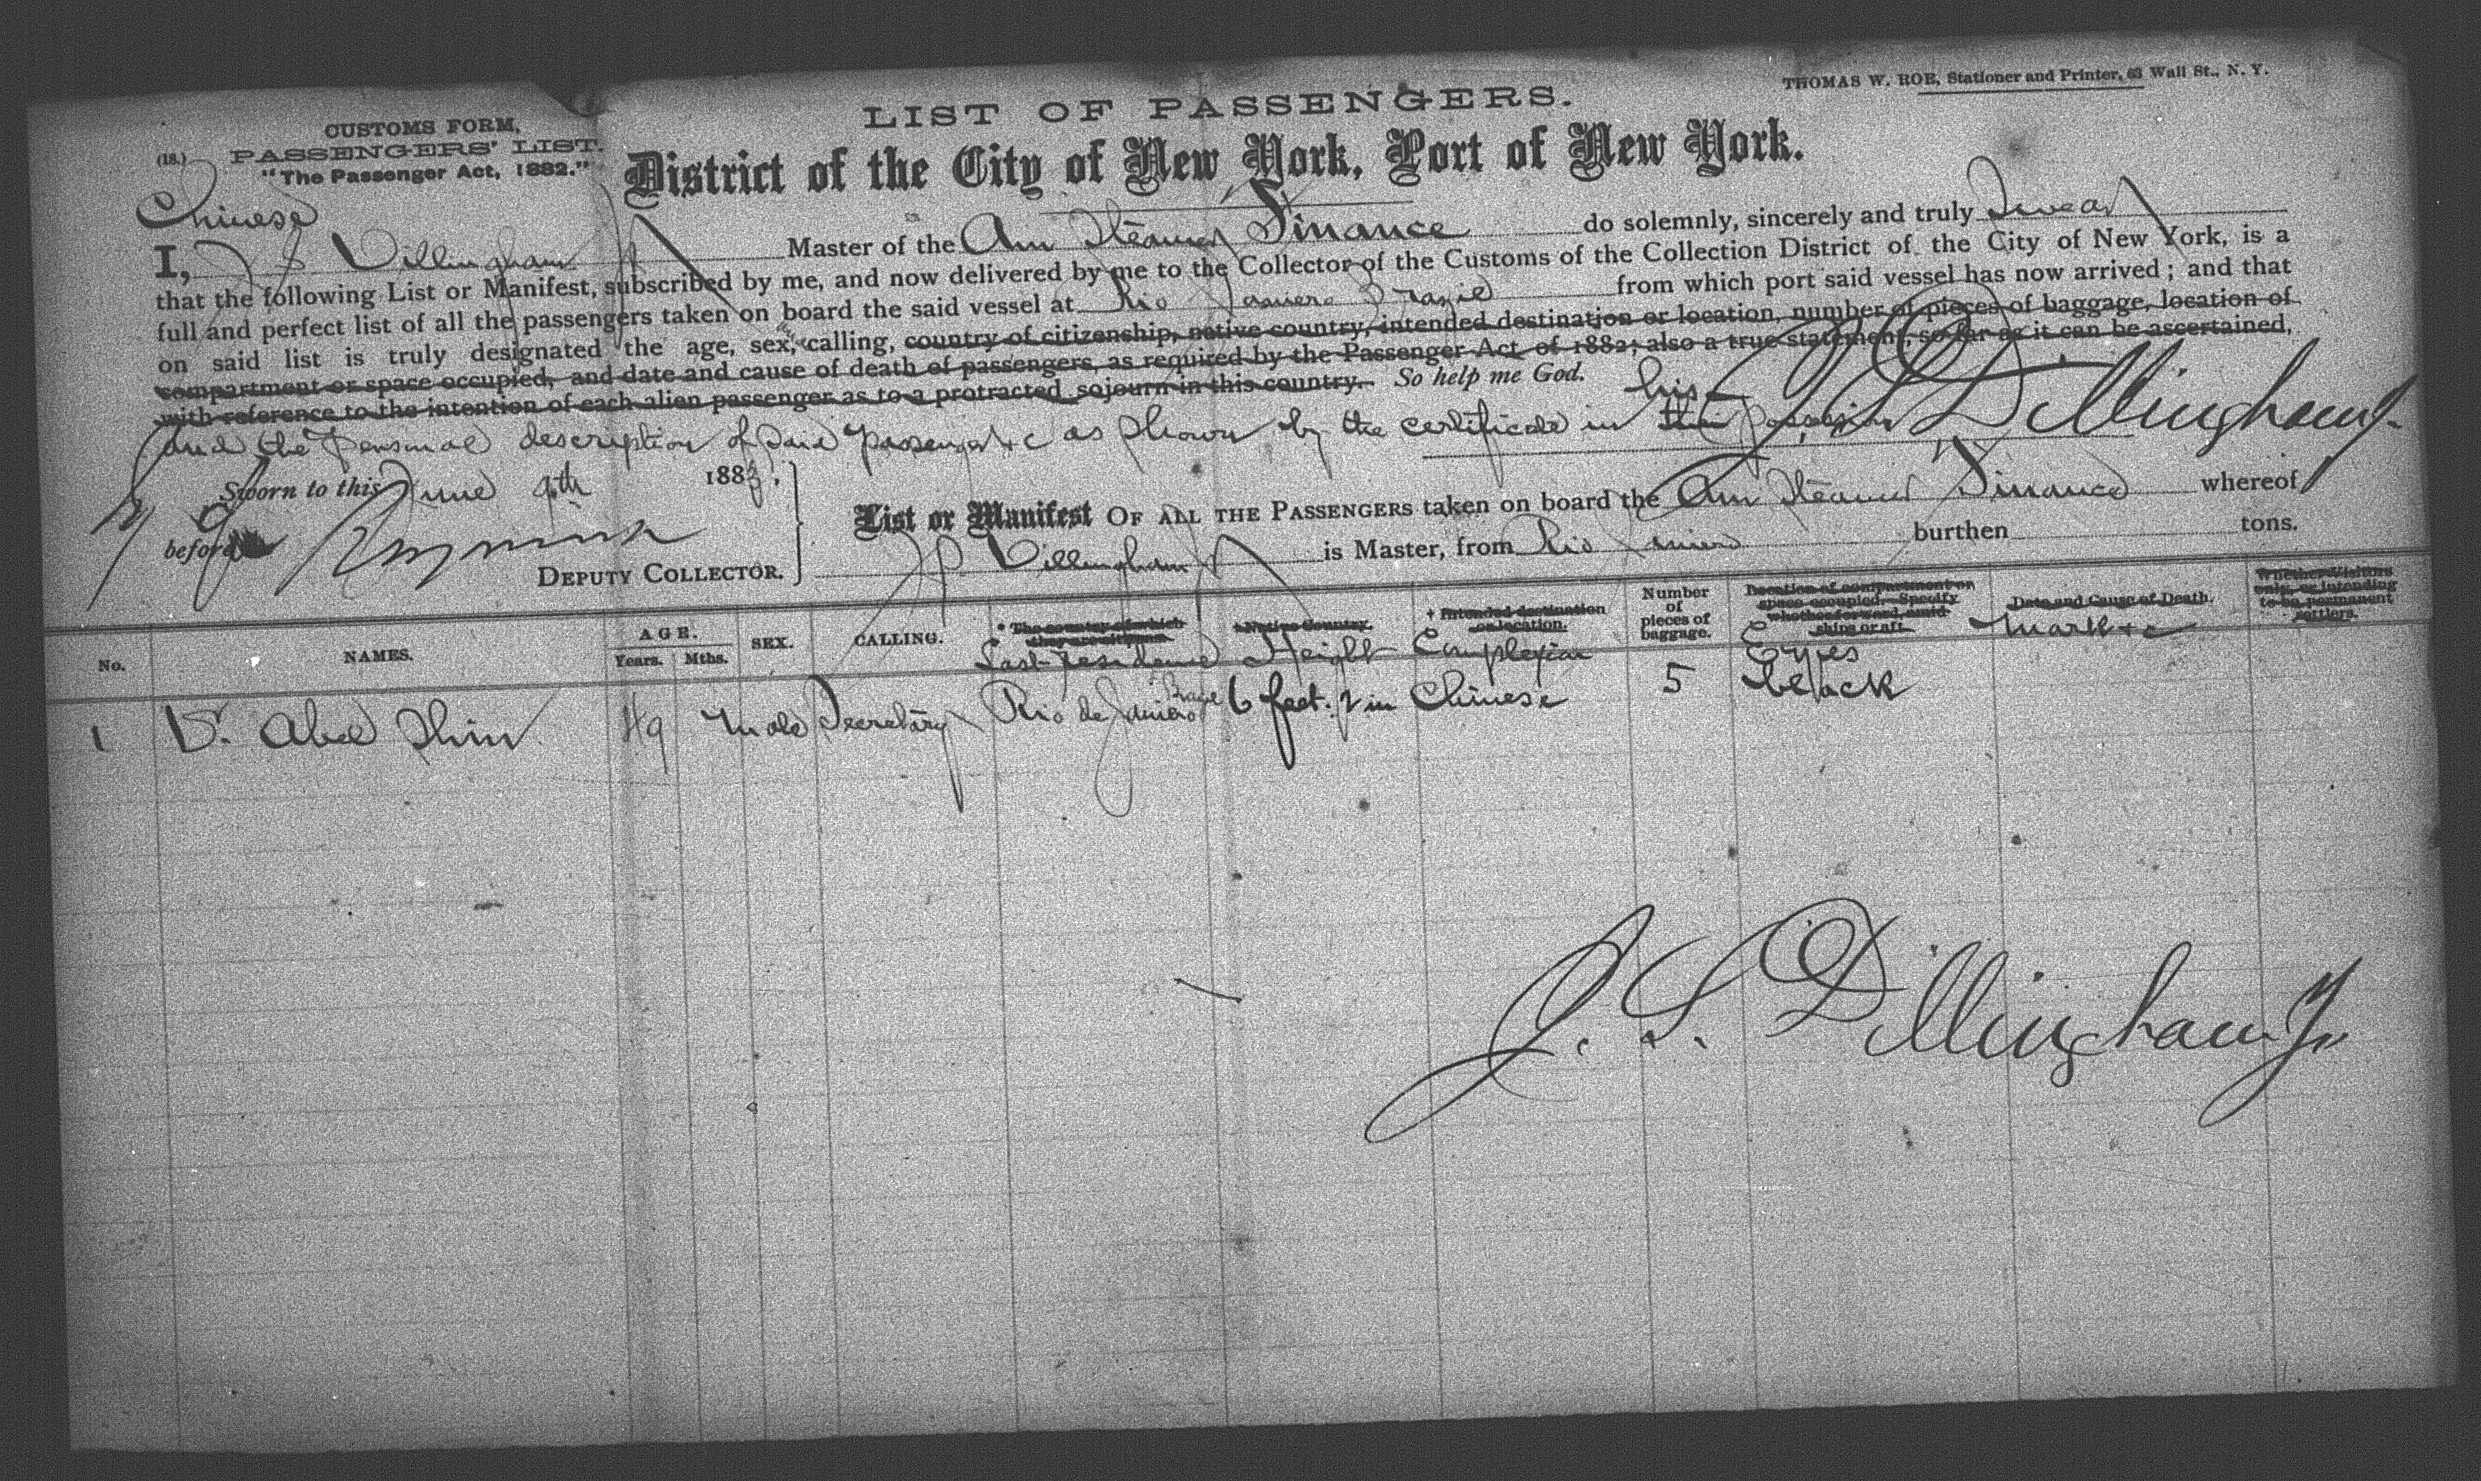 THOMAS W. ROE, Stationer and Printer, 63 Wall St., N. Y.
LIST OF PASSENGERS.
CUSTOMS FORM,
(18.) PASSENGERS' LIST.
"The Passenger Act, 1882."
District of the City of New York, Port of New York.
Chinese
I, J S Dillingham Jr Master of the Am Steamer Finance do solemnly, sincerely and truly Swear
that the following List or Manifest, subscribed by me, and now delivered by me to the Collector of the Customs of the Collection District of the City of New York, is a
full and perfect list of all the passengers taken on board the said vessel at Rio Janeiro Brazil from which port said vessel has now arrived; and that
on said list is truly designated the age, sex, calling, country of citizenship, native country, intended destination or location, number of pieces of baggage, location of
compartment or space occupied, and date and cause of death of passengers, as required by the Passenger Act of 1882; also a true statement, so far as it can be ascertained,
with reference to the intention of each alien passenger as to a protracted sojourn in this country. So help me God.
and the Personal description of said passenger &c as shown by the certificate in their his possession
J. S. Dillingham Jr
Sworn to this June 9th 188
before
DEPUTY COLLECTOR.
List or Manifest OF ALL THE PASSENGERS taken on board the Am Steamer Finance whereof
J S Dillingham Jr is Master, from Rio Janeiro burthen tons.
No. NAMES. AGE. Years. Mths. SEX. CALLING. * The country of which they are citizens. † Native Country. † Intended destination or location. Number of pieces of baggage. Location of compartment or space occupied. Specify whether forward, amidships or aft. Date and Cause of Death. Whether Visitors only, or intending to be permanent settlers.
Last residence Height Complexion Eyes Mark &c
1 Dr. Abel Shin 49 Male Secretary Rio de Janeiro Brazil 6 feet. 2 in Chinese 5 black
J. S. Dillingham Jr